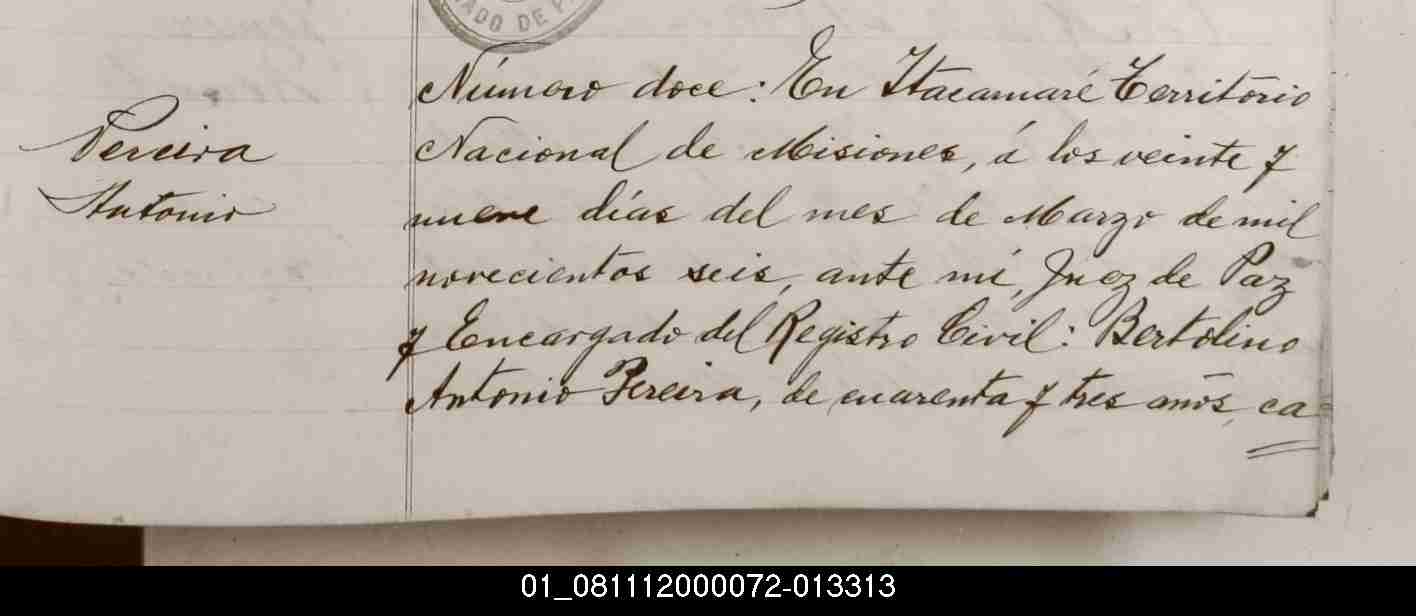 ADO DE P
Número doce: En Itacamaré Territorio
Pereira
Antonio
Nacional de Misiones, á los veinte y
nueve días del mes de Marzo de mil
novecientos seis, ante mí, Juez de Paz
y Encargado del Registro Civil: Bertolino
Antonio Pereira, de cuarenta y tres años, ca
01_081112000072-013313